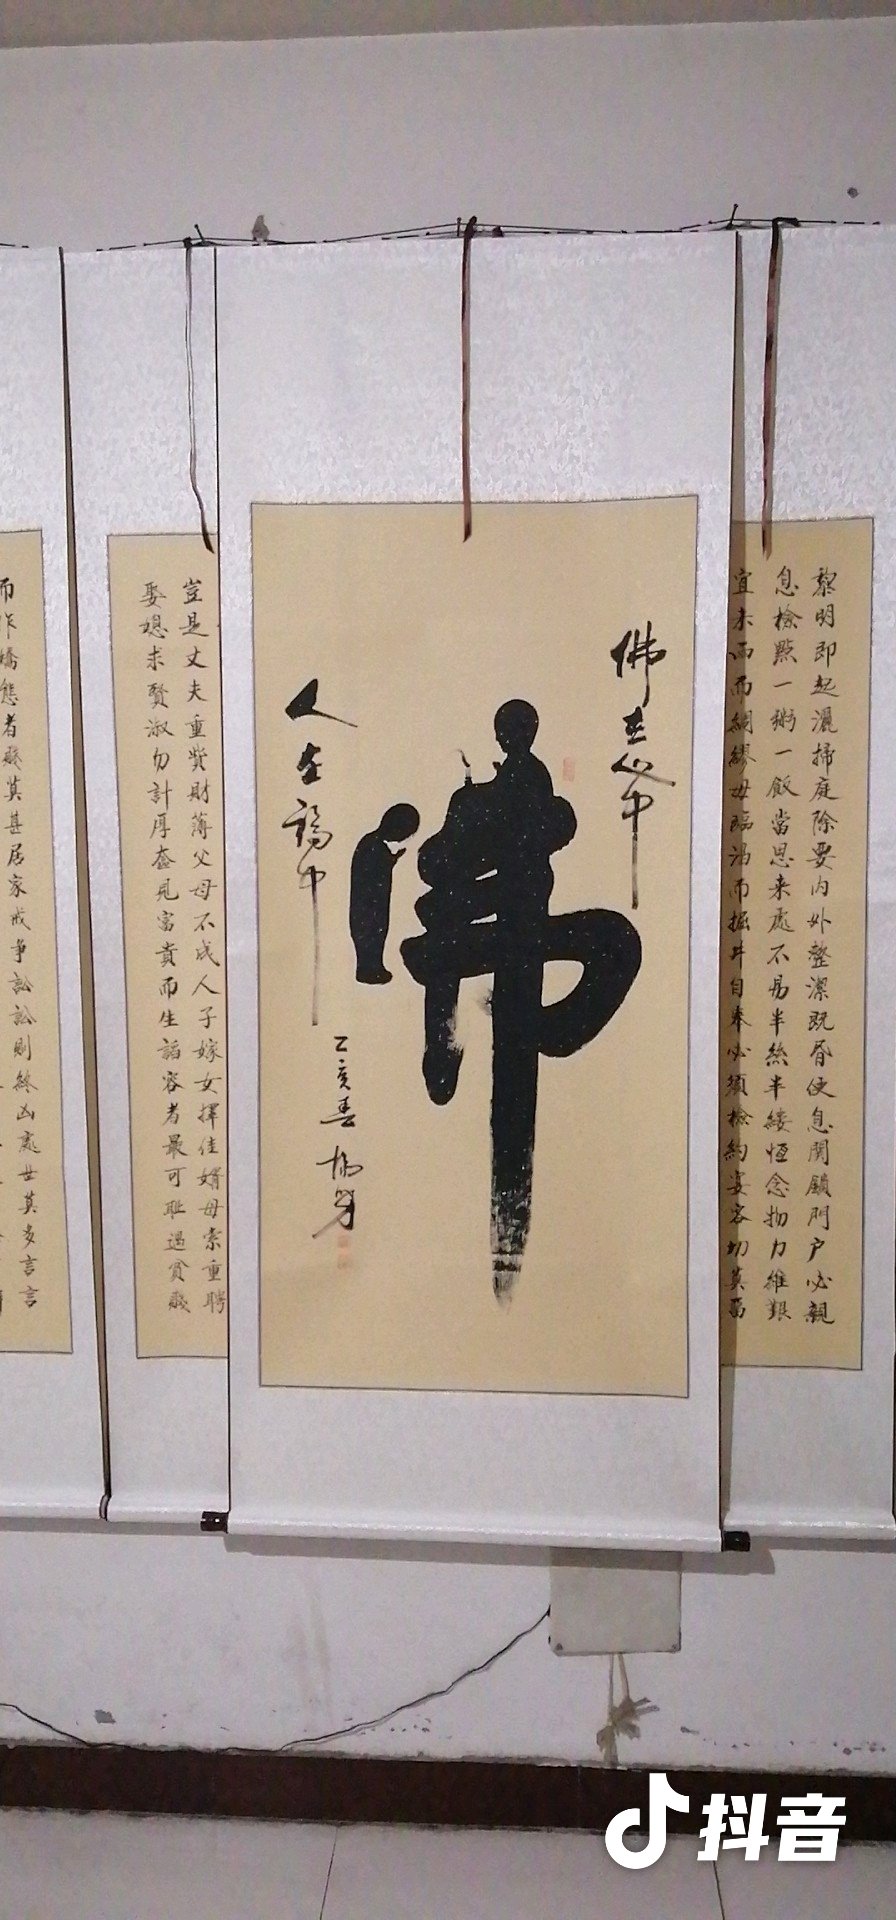 黎明即起灑掃庭除要内外整潔既昏便息関鎖門户必親
息檢點一粥一飯當思来處不易半絲半縷恆念物力維艱
宜未雨而綢繆毋臨渴而掘井自奉必須檢約宴客切莫留
佛在心中
佛
人在福中
乙亥春
豈是丈夫重貲財薄父母不成人子嫁女擇佳婿毋索重聘
娶媳求賢淑勿計厚奩見富貴而生諂容者最可耻遇貧賤
而作嬌態者賤莫甚居家戒爭訟訟則終凶處世莫多言言
抖音